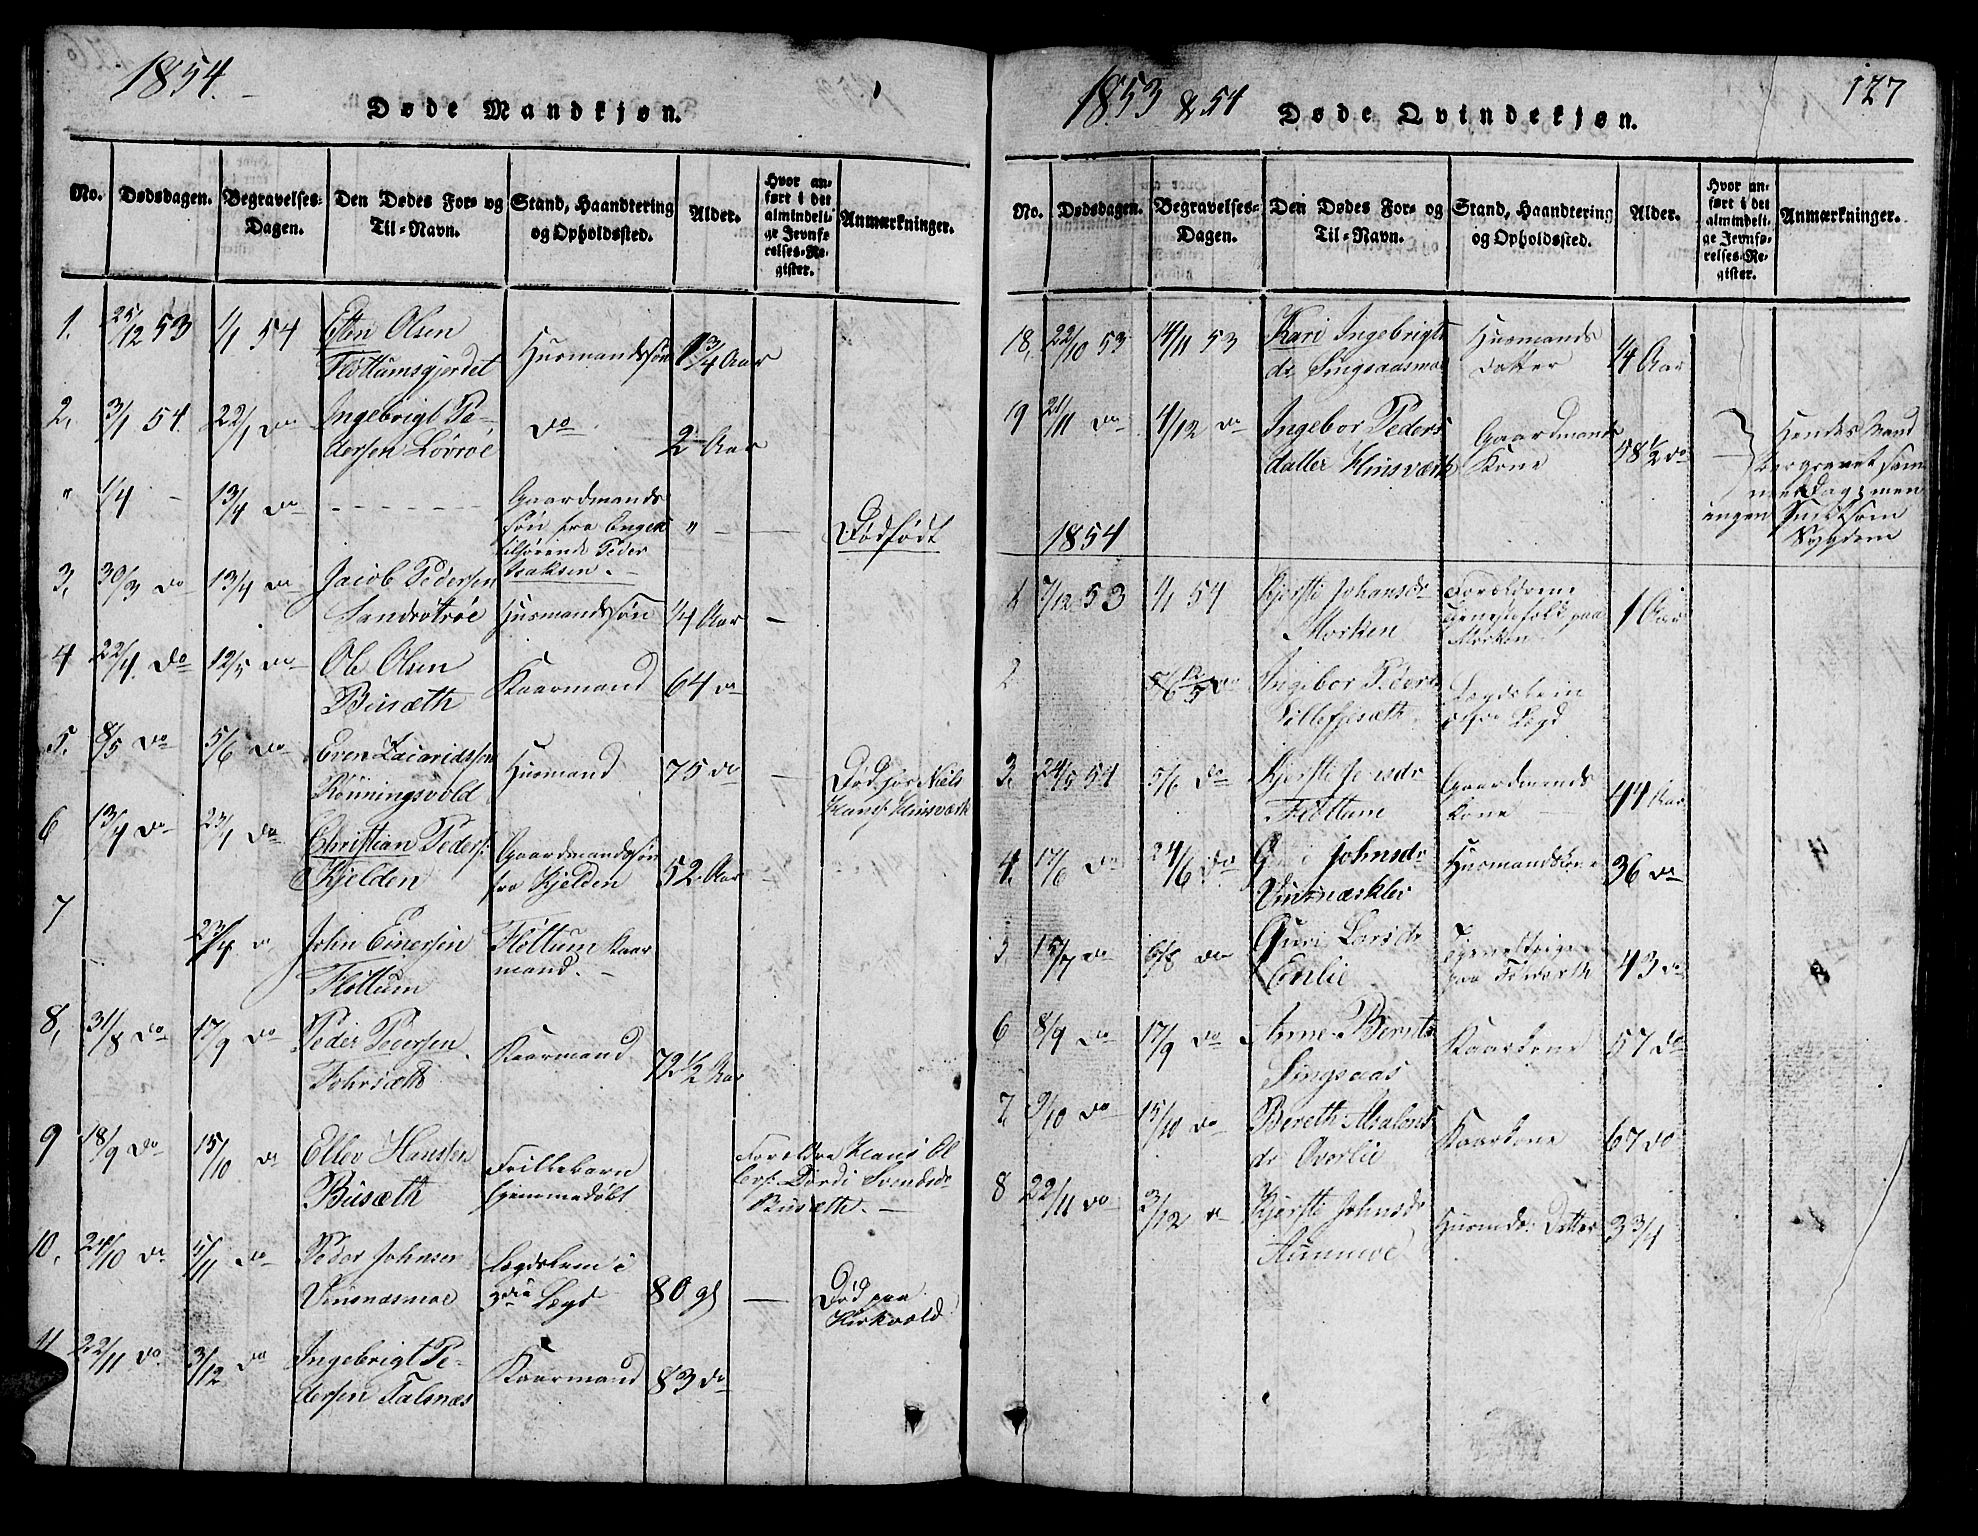 1854.
Døde Mandkjøn.
No. Dødsdagen. Begravelses-Dagen. Den Dødes For- og Til-Navn. Stand, Haandtering og Opholdssted. Alder. Hvor anført i det almindelige Jevnførelses-Register. Anmærkninger.
1. 25/12 53 1/1 54 Esten Olsen
Flottumsgjerdet Husmandssøn 1 3/4 Aar
2, 3/1 54. 22/1 do Ingebrigt Pe-
dersen Lövröe do 2 Aar
" 1/4 - 13/4 do - - - - - Gaardmands
søn fra Engen " - - Dødfødt
tilhørende Peder
Isaksen. -
3, 30/3 do 13/4 do Jacob Pedersen
Sandrötröe Husmandssøn 1/4 Aar -
4 22/4. do 12/5 do Ole Olsen
Busæth Kaarmand 64 do
5. 8/5 do 5/6 do Even Zacariassen
Rönningsvold Husmand 75 do -
Død hos Niels
Hans. Hinsværk
6 13/4 do 23/4 do Christian Peders.
Kjelden Gaardmandssøn
fra Kjelden 52 Aar -
7 23/4 do John Einersen
Flottum Flöttum Kaar
mand. -
8, 31/8 do 17/9 do Peder Peersen
Fohrsæth Kaarmand 72 1/2 Aar
9 18/9 do 15/10 do Ellev Hanssen
Busæth Frillebarn
hjemmedøbt
Foreldre Hans Ol
ers. Dordi Svendsdr
Busæth. -
10, 24/10 do 5/11 do Peder Johnsen
Vinsnesmoe Lægdslem i
3die Lægd 80 gl - Død paa
Kirkvold
11. 22/11 do 3/12 do Ingebrigt Pe-
dersen Talsnæs Kaarmand 83 do
1853 & 54
Døde Qvindekjøn.
127
No. Dødsdagen. Begravelses-Dagen. Den Dødes For- og Til-Navn. Stand, Haandtering og Opholdssted. Alder. Hvor anført i det almindelige Jevnførelses-Register. Anmærkninger.
18, 22/10 53 14/11 53 Kari Ingebrigts
dr Singsaasmoe Husmands
datter 1/4 Aar
19 21/11 do 4/12 do Ingebor Peders
datter Hinsværk Gaardmands
Kone 58 1/2 do
Hendes Mand
begravet sam
me Dag, men
ingen Smitsom
Sygdom
1854
1 7/12 53 1/1 54 Kjersti Johansdr
Morken Foreldrene
tjenestefolk paa
Morken 1 Aar
2 12/5 do Ingebor Peders
Lillefjesæth Lægdslem
Lægd
3, 24/5 54 5/6 do Kjersti Jensdr
Flöttum Gaardmands
kone 44 Aar
4, 17/6 do 24/6 do Johnsdr
Vinsnæskler Husmandskone 36 do
5 15/7 do 6/8 do Guri Larsdr
Enlie Tjenestpige
paa 43 do
6 8/9 do 17/9 do Anne Bernts
Singsaas Kaarkone 57 do
7, 3/10 do 15/10 do Bereth
dr Overlie Kaarkone 67 do
8 22/11 do 3/12 do Kjersti Johnsdr
Aunmoe Husmds: Datter 3 3/4